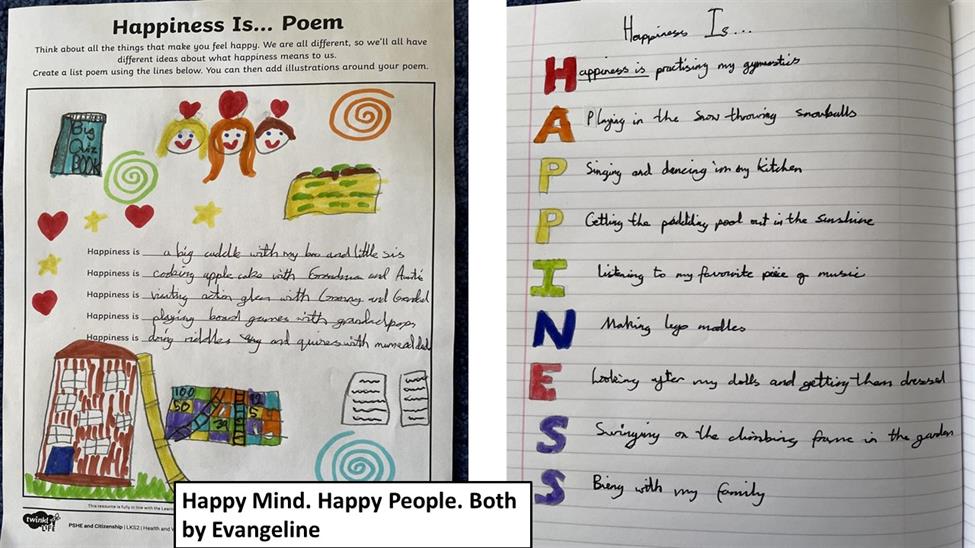 Happiness Is... Poem
Think about all the things that make you feel happy. We are all different, so we'll all have
different ideas about what happiness means to us.
Create a list poem using the lines below. You can then add illustrations around your poem.
Big
Quiz
BOOK
Happiness is a big cuddle with my bro and little sis
Happiness is cooking apple cake with Grandma and
Happiness is visiting action glen with Granny and
Happiness is playing board games with grandad pops
Happiness is doing riddles and quizes with
100
50
This resource is fully in line with the
twinkl
LIFE
PSHE and Citizenship | LKS2 | Health and
Happy Mind. Happy People. Both
by Evangeline
Happiness Is...
Happiness is practising my gymnastics
A Playing in the snow throwing snowballs
P Singing and dancing in my kitchen
P Getting the paddling pool out in the sunshine
I Listening to my favourite piece of music
N Making lego modles
E Looking after my dolls and getting them dressed
S Swinging on the climbing frame in the garden
S Bieng with my family